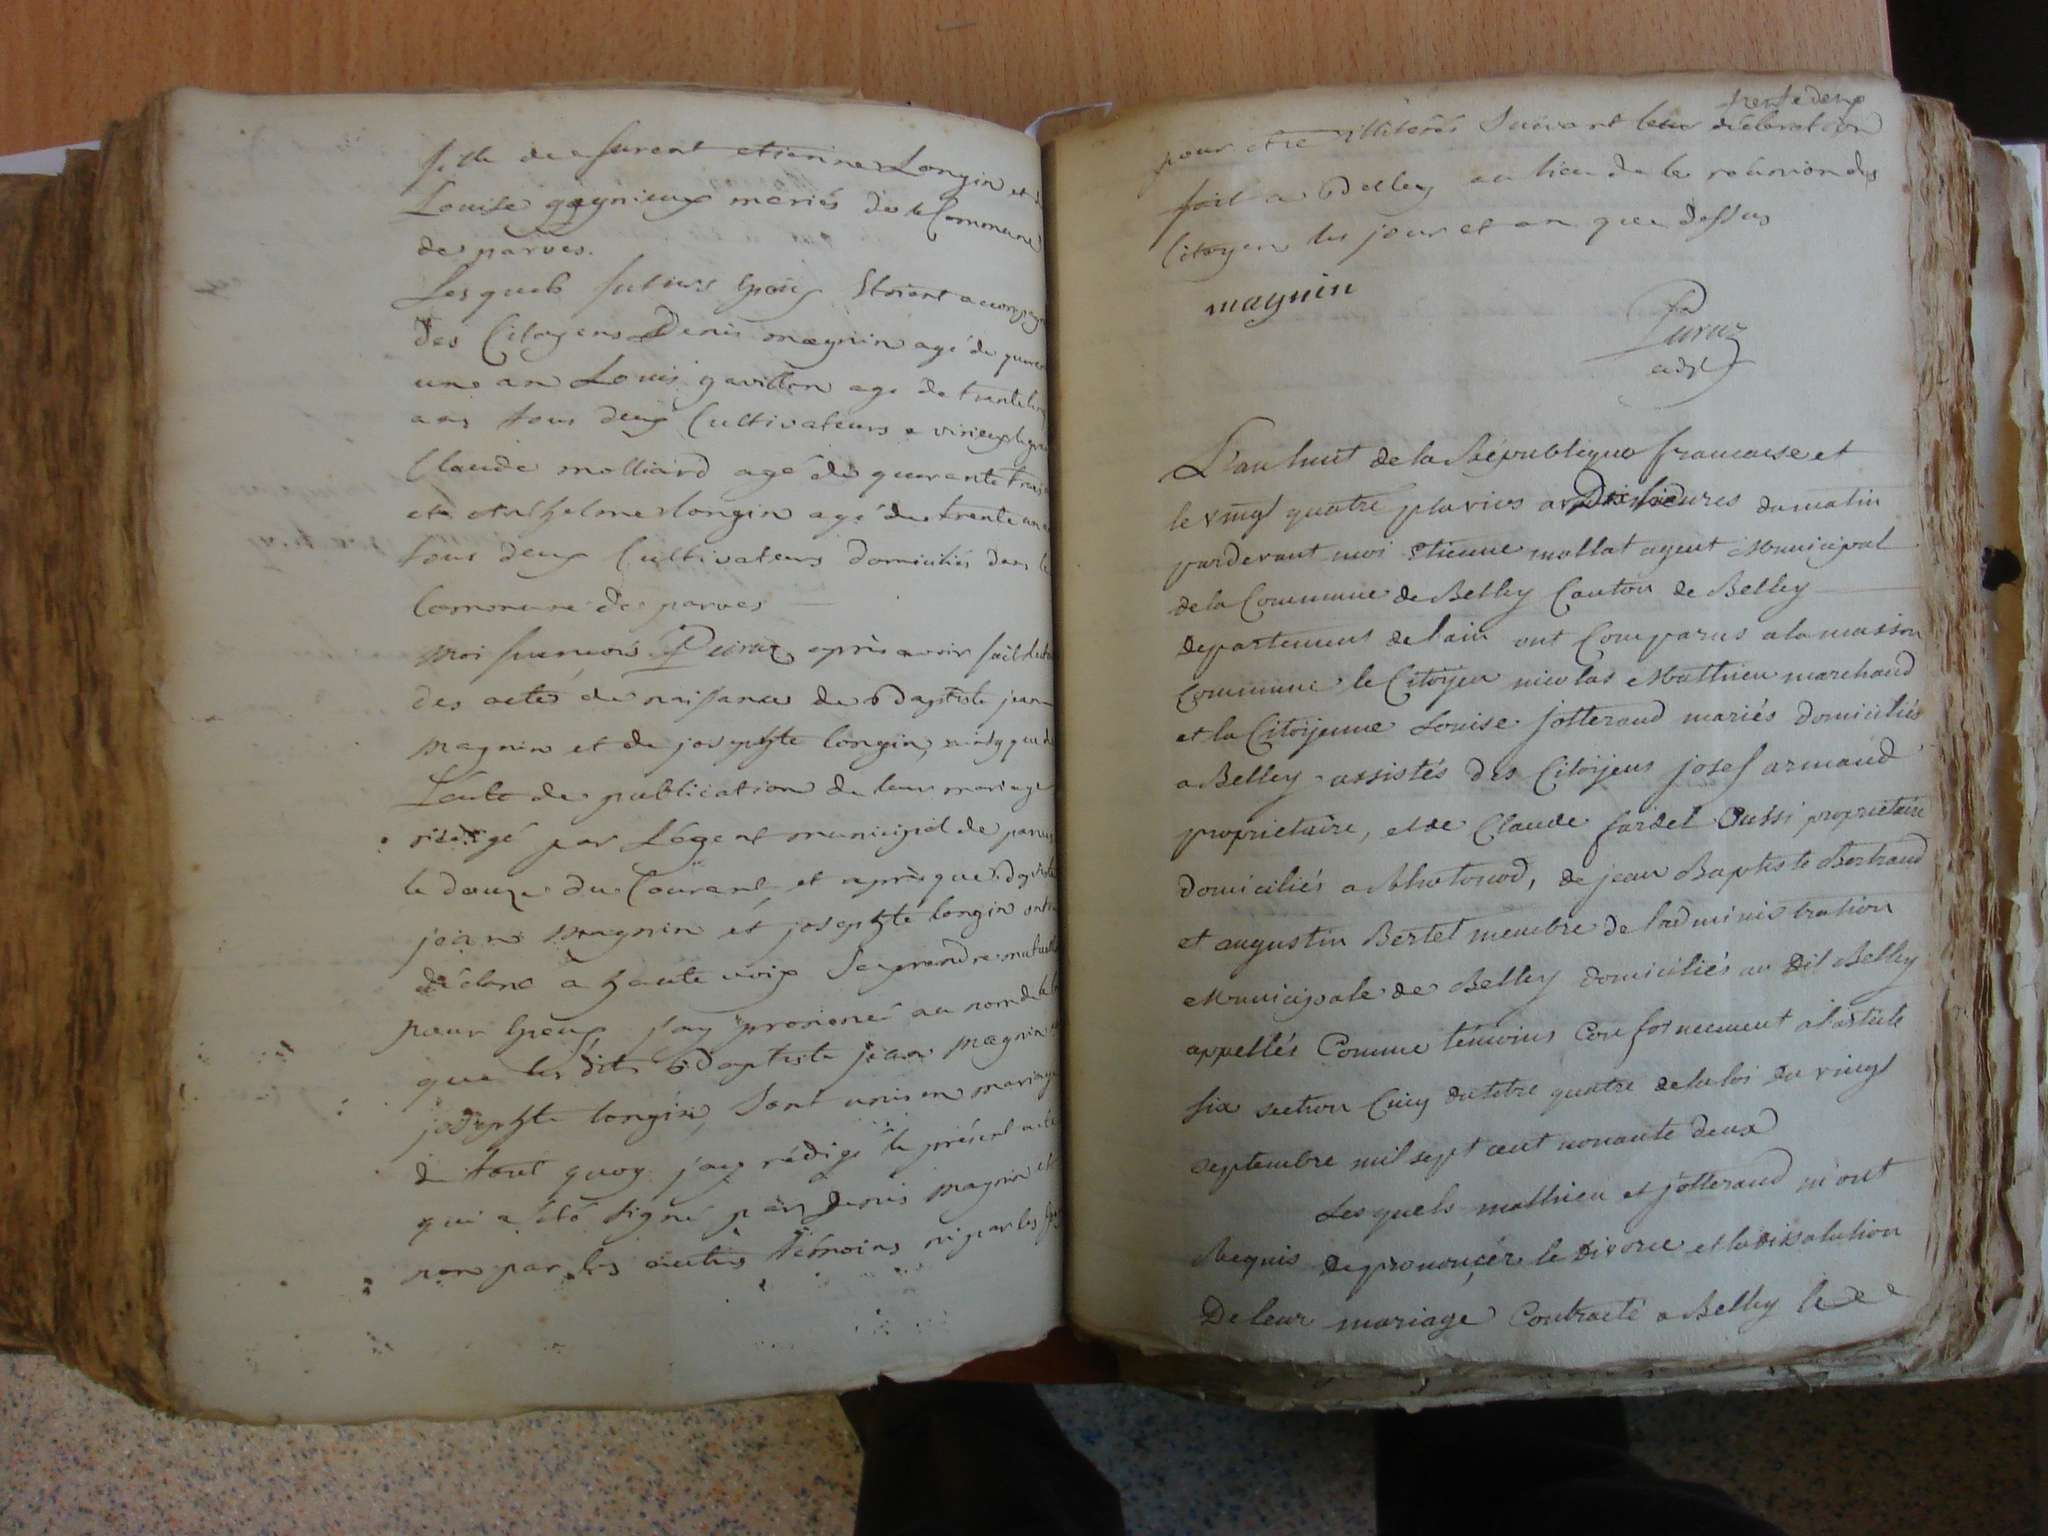 fille de furent etienne Longin et d
Louise gagnieux mariés de la Commune
de parves.
Lesquels futurs Epoux Etoient accompagn
des Citoyens Denis magnin agé de quaran
un an Louis gavillon age de trente
ans tous deux Cultivateurs a virieux le gra
Claude molliard agé de quarante trois
et Anthelme longin agé de trente un
tous deux Cultivateurs domiciliés dans la
Commune de parves
moi francois Puraz après avoir fait
des actes de naissance de Baptiste jean
magnin et de josephte longin, ainsy que de
L'acte de publication de leur mariage
rédigé par L'égent municipal de parves
le douze du Courant et après que Baptiste
jean magnin et josephte longin ont
déclaré a haute voix Se prendre mutuelle
pour Epoux j'ay prononcé au nom de la loi
que les dits Baptiste jean magnin
josephte longin, Sont unis en mariage
de tout quoy j'ay rédigé le présent acte
qui a été Signé par denis magnin et
non par les autres témoins ni par les Epoux
trente deux
pour etre illiterés Suivant leur déclaration
fait a Belley au lieu de la réunion des
Citoyen les jour et an que dessus
magnin
Puraz
adjt
L'an huit de la République francaise et
le vingt quatre pluvios a Dix heures du matin
pardevant moi Etienne mollat agent Municipal
de la Commune de Belley Canton de Belley
Departement de lain ont Comparus a la maison
Commune le Citoyen nicolas Matthieu marchand
et la Citoÿenne Louise jotterand mariés domiciliés
a Belley assistés des Citoÿens josef armand
proprietaire, et de Claude fardel Aussi proprietaire
domiciliés a Lhotonod, de jean Baptiste Bertrand
et augustin Bertet membre de l'administration
Municipale de Belley domiciliés au Dit Belley
appellés Comme temoins Conformement a l'article
six section Cinq du titre quatre de la loi du vingt
septembre mil sept cent nonante deux
Lesquels matthieu et jotterand m'ont
Requis de prononçer le Divorce et la dissolution
De leur mariage Contracté a Belley le